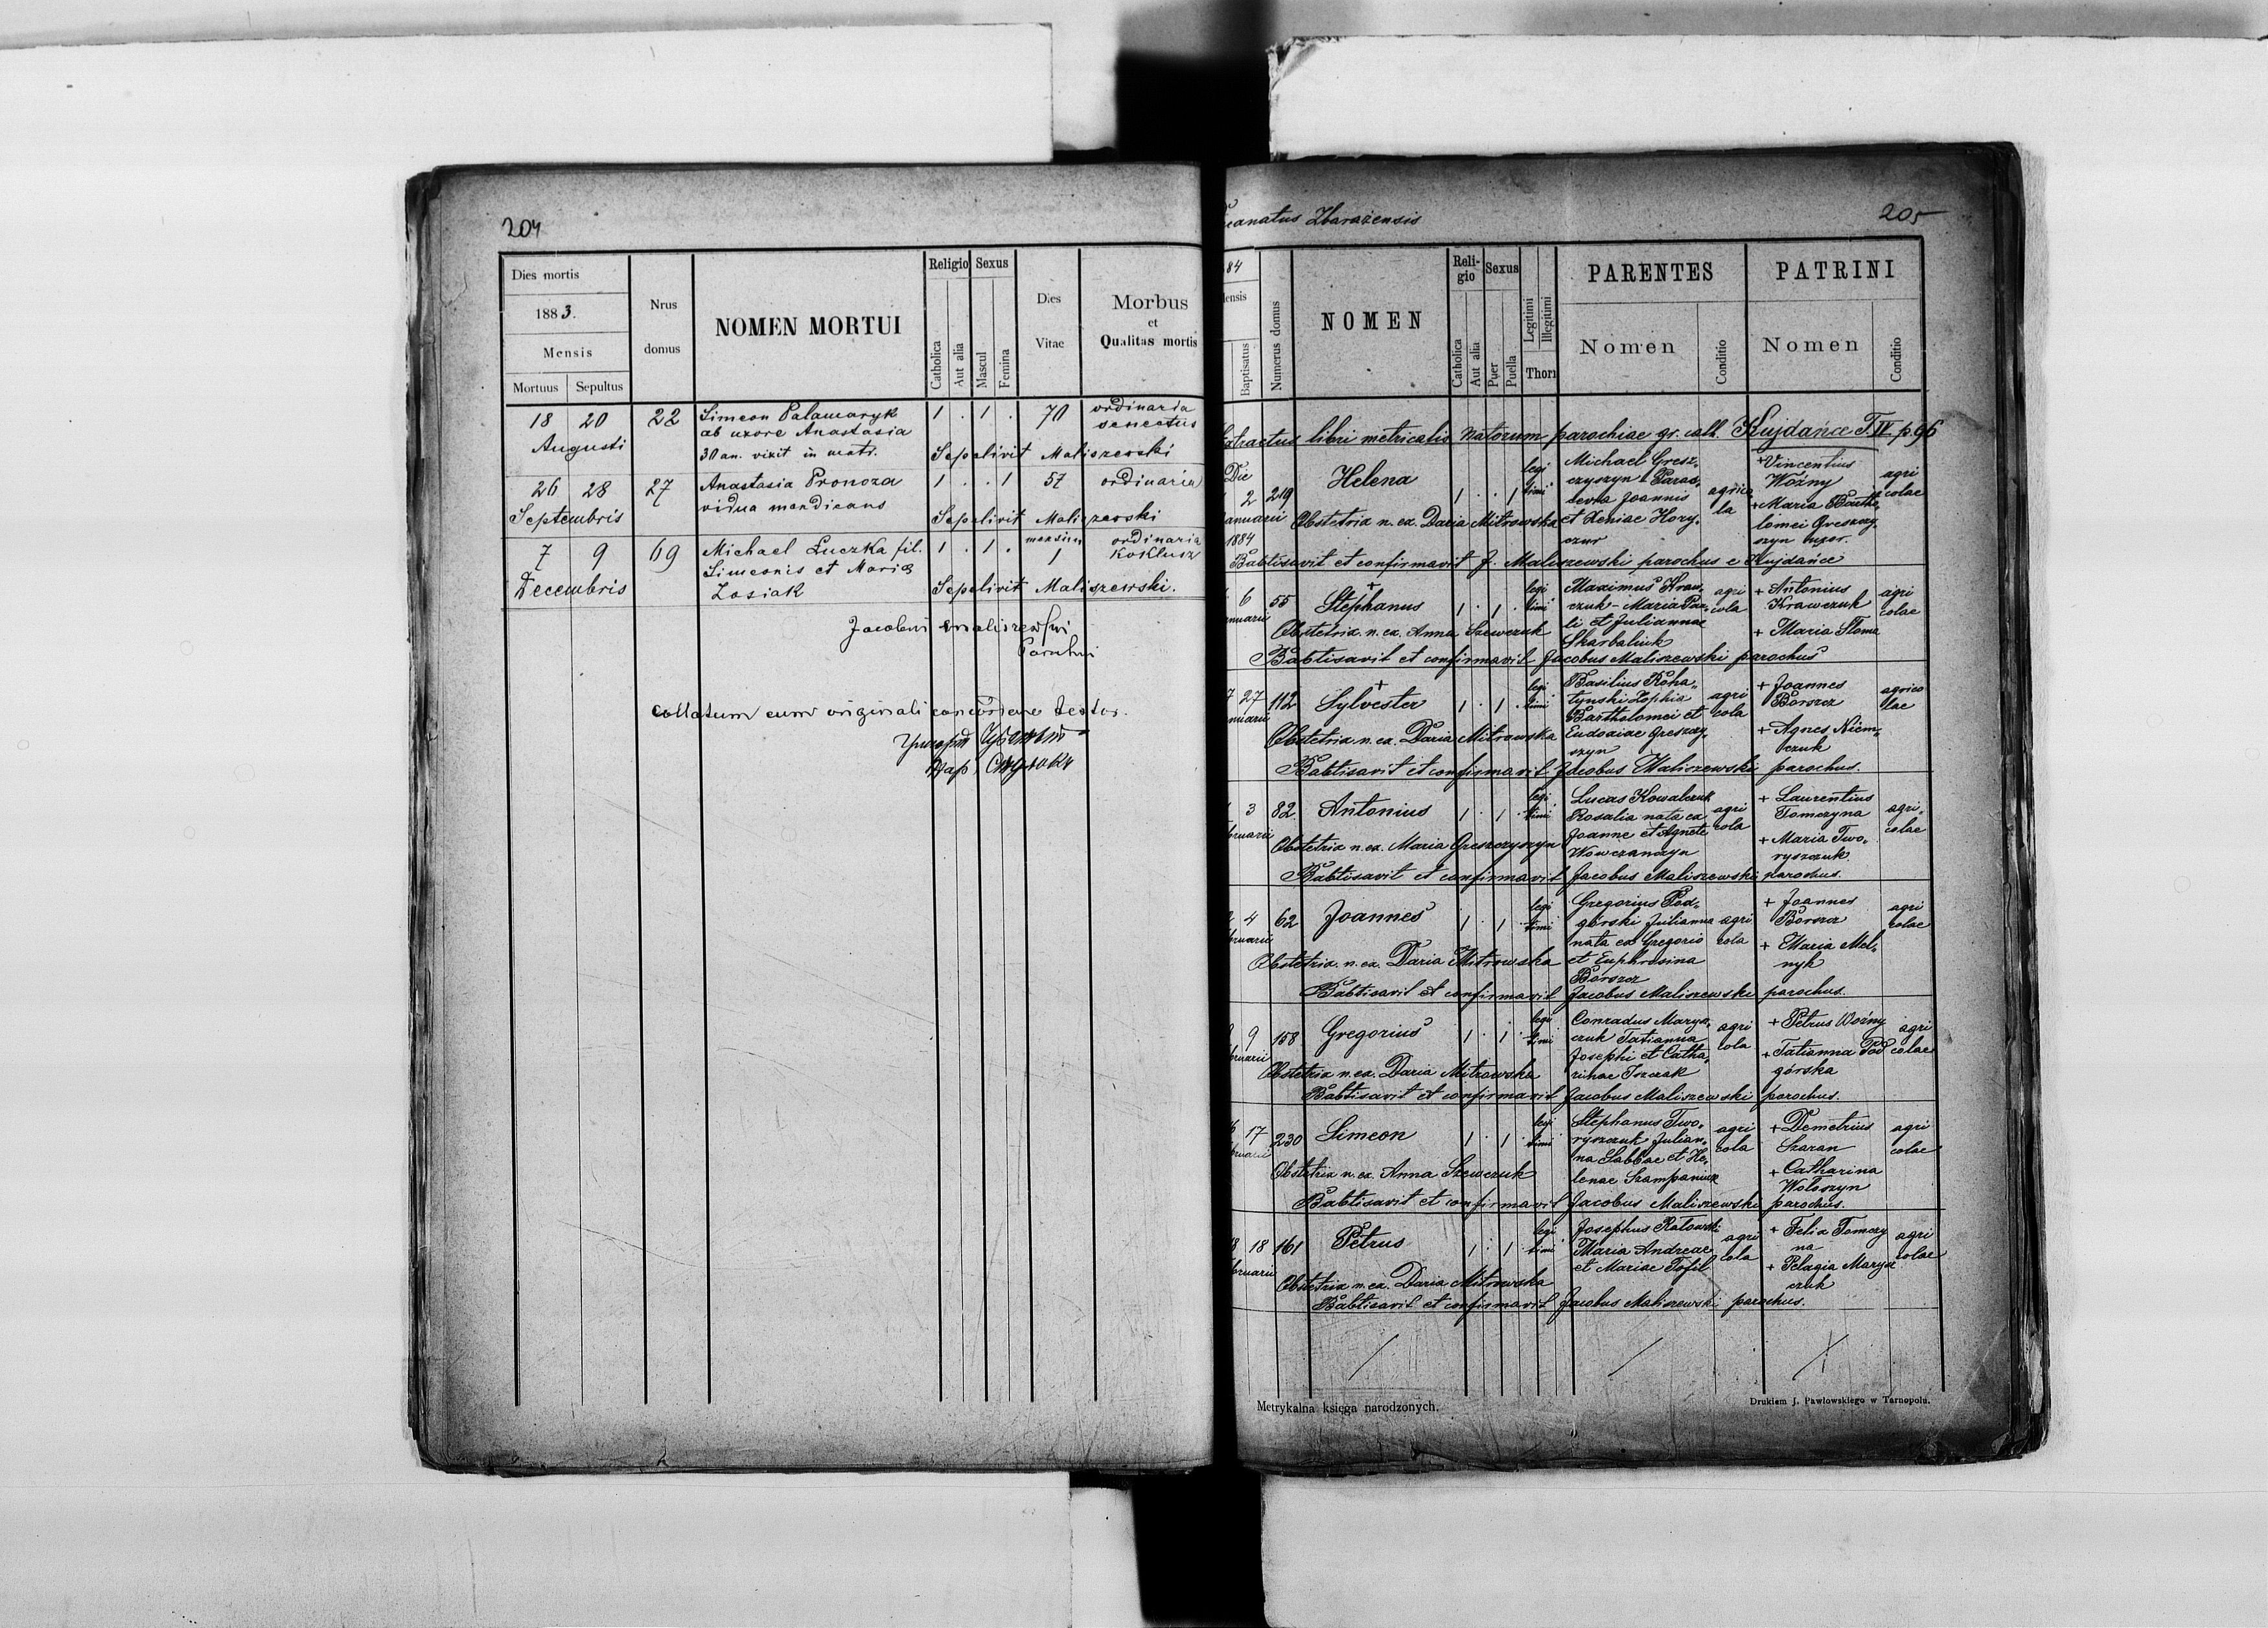 204
Dies mortis
1883.
Mensis
Mortuus Sepultus
Nrus domus
NOMEN MORTUI
Religio
Catholica
Aut alia
Sexus
Mascul
Femina
Dies Vitae
Morbus
et
Qualitas mortis
18 20 22 Simeon Palamaryk 1 . 1 . 70 ordinaria
ab uxore Anastasia senectus
Augusti 30 an. vixit in matr. Sepelivit Maliszewski
26 28 27 Anastasia Pronoza 1 . . 1 57 ordinaria
Septembris vidua mendicans Sepelivit Maliszewski
7 9 69 Michael Łuczka fil. 1 . 1 . mensium 1 ordinaria
Simeonis et Maria koklusz
Decembris Zosiak Sepelivit Maliszewski.
Jacobus Maliszewski
Parochus
Collatum cum originali concordare testor.
canatus Zbarażensis
205
84
Mensis
Baptisatus
Numerus domus
NOMEN
Religio
Catholica
Aut alia
Sexus
Puer
Puella
Legitimi
Illegitimi
Thori
PARENTES
Nomen
Conditio
PATRINI
Nomen
Conditio
Extractus libri metricalis Natorum parochiae gr. cath. Kujdańce T. IV p. 96
Die
2 219 Helena 1 . . 1 legitimi
Januarii
1884
Michael Gresz-
czyszyn Paras-
cevia Joannis
et Xeniae Hory-
czur
agricola
+ Vincentius
Woźny
+ Maria Bartho-
lomei Greszczy-
szyn uxor.
agricolae
Obstetrix n. ex. Daria Mitrowska
Babtisavit et confirmavit J. Maliszewski parochus e Kujdańce
6 55 Stephanus 1 . 1 . legitimi
nuarii
Maximus Kraw-
czuk - Maria Pau-
li et Juliannae
Skarbaliuk
agricola
+ Antonius
Krawczuk
+ Maria Słoma
agricolae
Obstetrix. n. ex. Anna Szewczuk
Babtisavit et confirmavit Jacobus Maliszewski parochus
7 27 112 Sylvester 1 . 1 . legitimi
nuarii
Basilius Roha-
tynski Zophia
Bartholomei et
Eudoxiae Greszczy-
szyn
agricola
+ Joannes
Borszcz
+ Agnes Niem-
czuk
agricolae
Obstetrix n. ex. Daria Mitrowska
Babtisavit et confirmavit Jacobus Maliszewski parochus.
3 82 Antonius 1 . 1 . legitimi
bruarii
Lucas Kowalczuk
Rosalia nata ex
Joanne et Agnete
Wowczanczyn
agricola
+ Laurentius
Tomczyna
+ Maria Two-
ryszczuk.
agricolae
Obstetrix n. ex. Maria Greszczyszyn
Babtisavit et confirmavit Jacobus Maliszewski parochus.
2 4 62 Joannes 1 . 1 . legitimi
bruarii
Gregorius Pod-
górski Julianna
nata ex Gregorio
et Euphrosina
Borszcz
agricola
+ Joannes
Borszcz
+ Maria Mel-
nyk
agricolae
Obstetrix. n. ex. Daria Mitrowska
Babtisavit et confirmavit Jacobus Maliszewski parochus.
9 158 Gregorius 1 . 1 . legitimi
bruarii
Conradus Marya-
czuk Tatianna
Josephi et Catha-
rinae Iszczak
agricola
+ Petrus Woźny
+ Tatianna Pod
górska
agricolae
Obstetrix n. ex. Daria Mitrowska
Babtisavit et confirmavit Jacobus Maliszewski parochus.
6 17 230 Simeon 1 . 1 . legitimi
bruarii
Stephanus Two-
ryszczuk Julian-
na Sabbae et He-
lenae Szampaniuk
agricola
+ Demetrius
Szaran
+ Catharina
Wołoszyn
agricolae
Obstetrix n. ex. Anna Szewczuk
Babtisavit et confirmavit Jacobus Maliszewski parochus.
8 18 161 Petrus 1 . 1 . legitimi
bruarii
Josephus Ratowski
Maria Andreae
et Mariae Tofil
agricola
+ Felix Tomczy
na
+ Pelagia Marya
czuk
agricolae
Obstetrix n. ex. Daria Mitrowska
Babtisavit et confirmavit Jacobus Maliszewski parochus.
Metrykalna księga narodzonych.
Drukiem J. Pawłowskiego w Tarnopolu.